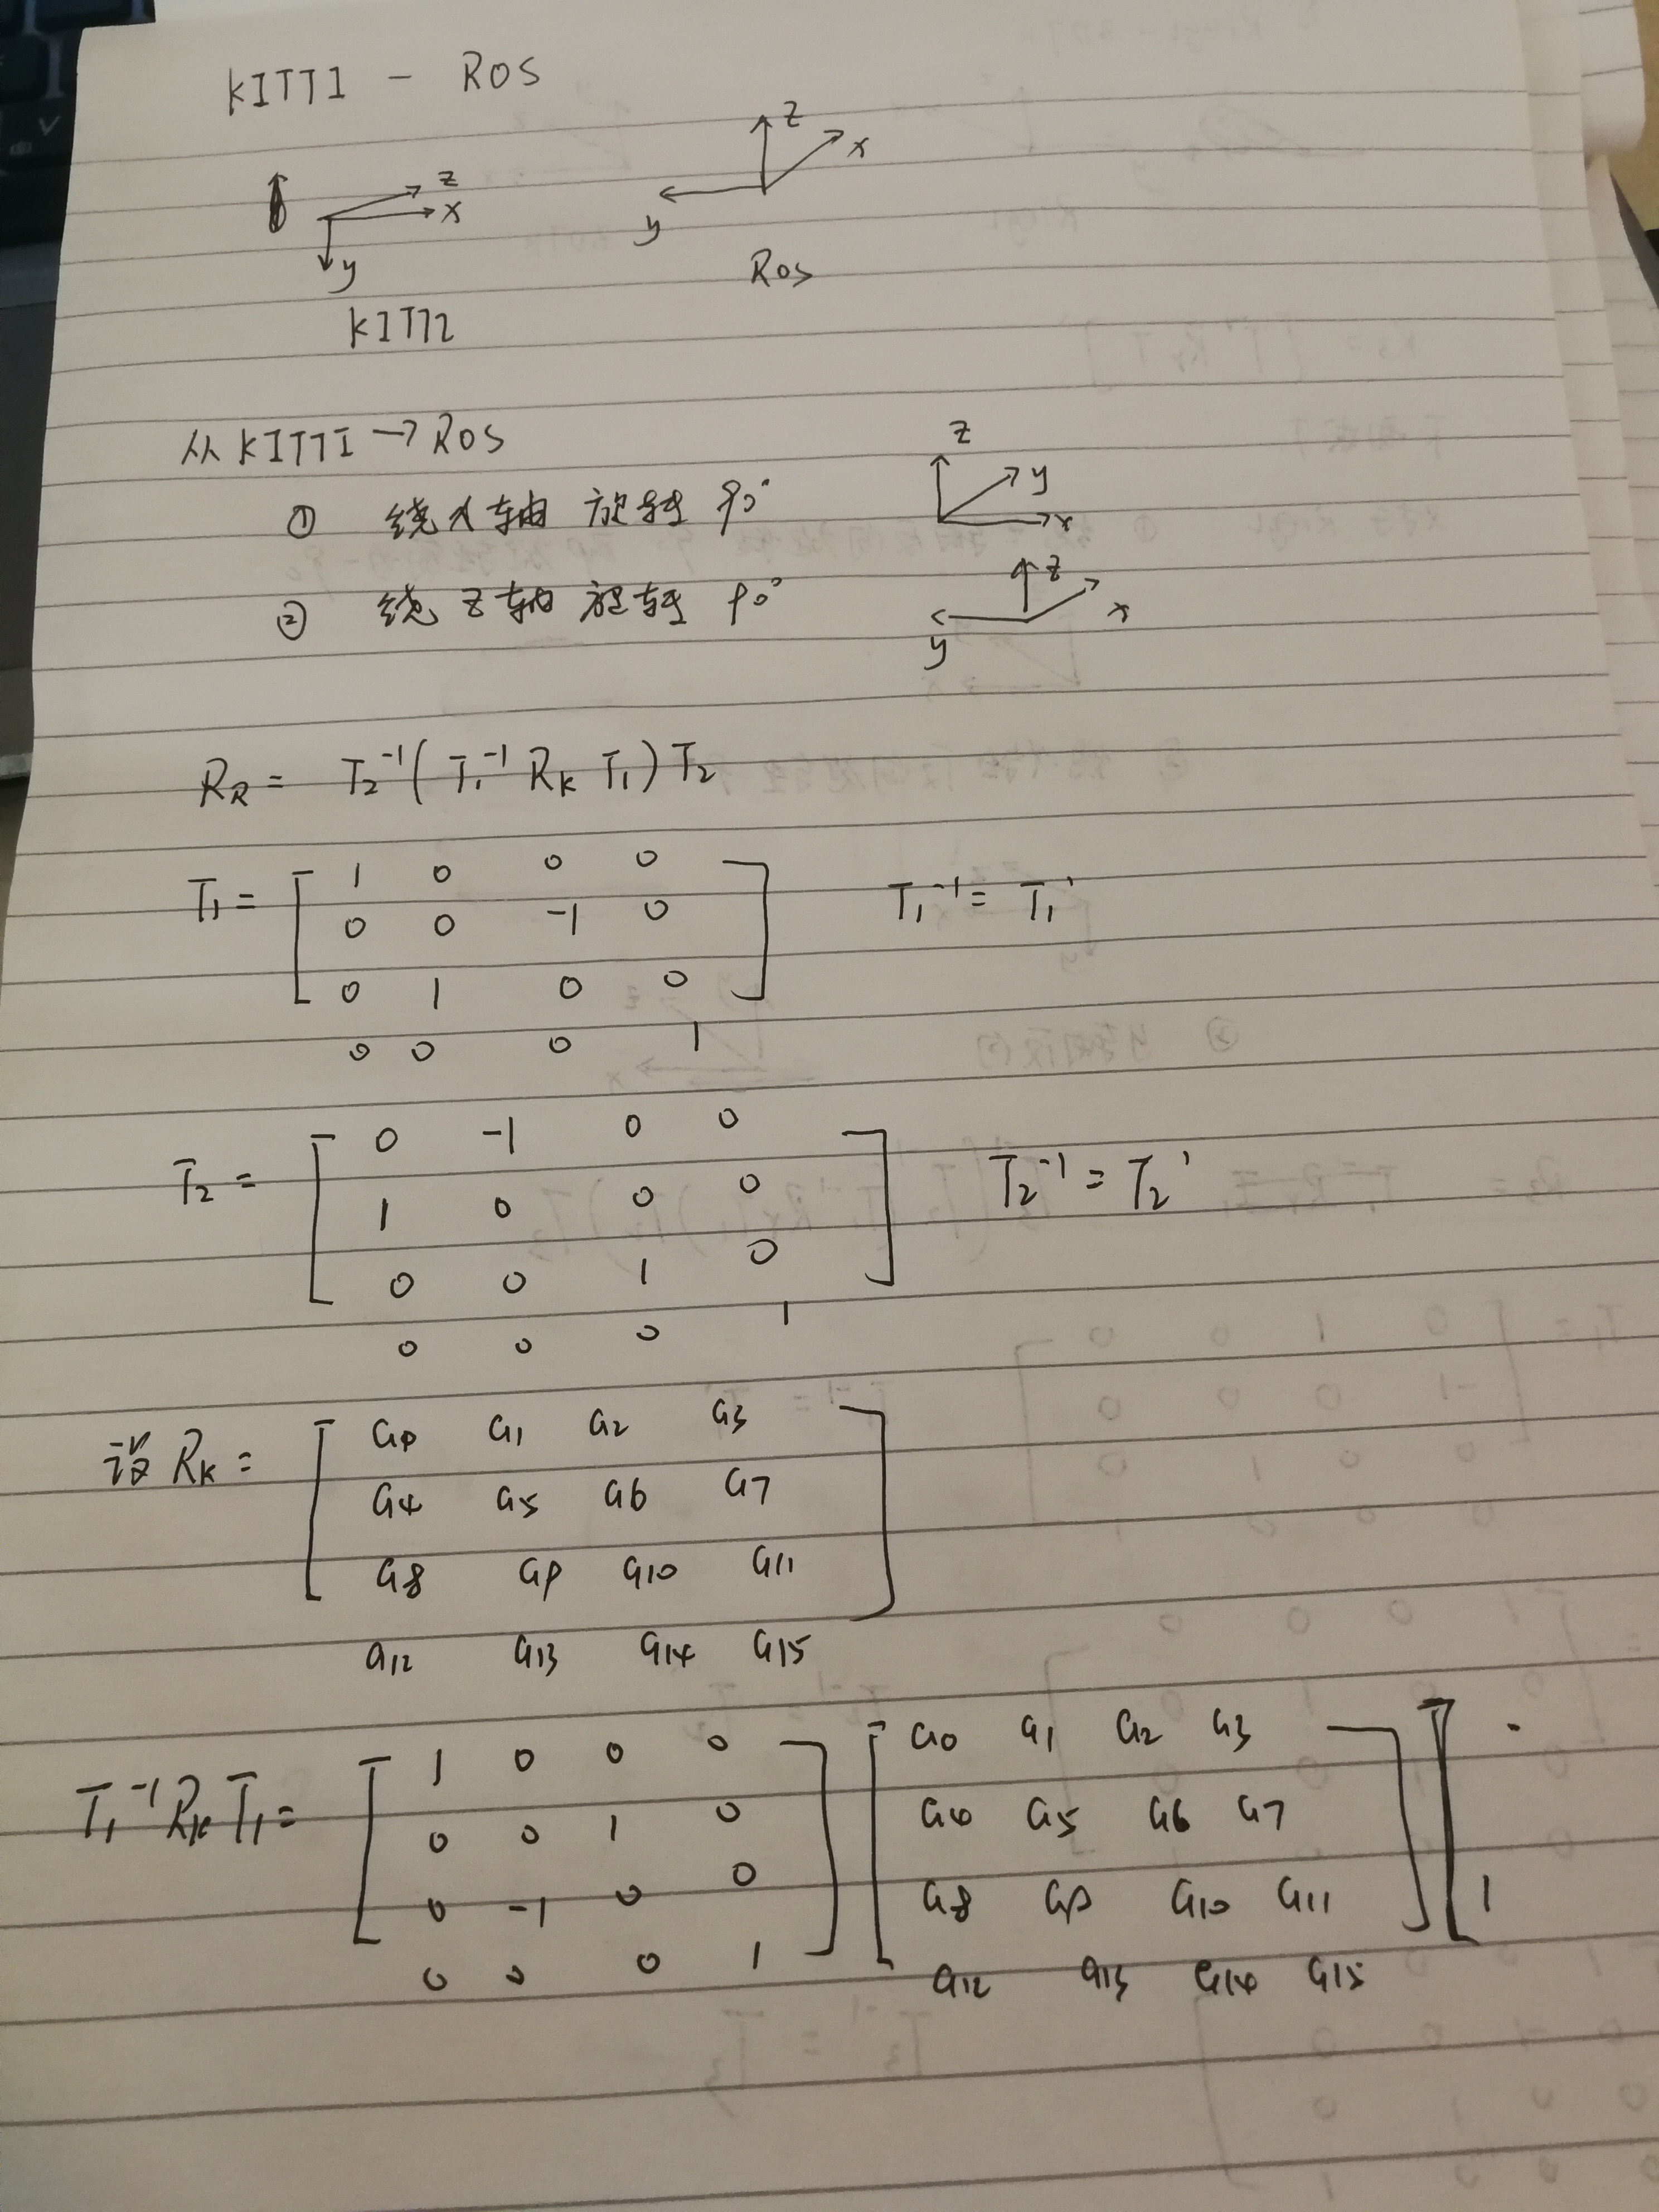 KITTI - ROS
z
x
y
KITTI
z
x
y
ROS
从KITTI → ROS
① 绕x轴 旋转 90°
z
y
x
② 绕z轴 旋转 90°
z
x
y
R_R = T₂⁻¹ ( T₁⁻¹ R_K T₁ ) T₂
T₁ = [ 1 0 0 0
0 0 -1 0
0 1 0 0 ]
0 0 0 1
T₁⁻¹ = T₁'
T₂ = [ 0 -1 0 0
1 0 0 0
0 0 1 0 ]
0 0 0 1
T₂⁻¹ = T₂'
设 R_K = [ a0 a1 a2 a3
a4 a5 a6 a7
a8 a9 a10 a11 ]
a12 a13 a14 a15
T₁⁻¹ R_K T₁ = [ 1 0 0 0 ] [ a0 a1 a2 a3 ] [
0 0 1 0 a4 a5 a6 a7
0 -1 0 0 a8 a9 a10 a11 1
0 0 0 1 a12 a13 a14 a15